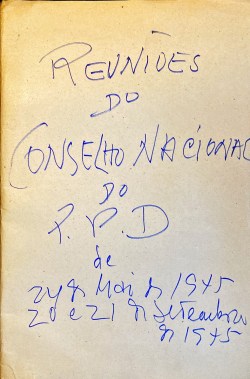 REUNIÕES
DO
CONSELHO NACIONAL
DO
P. P. D
de
24 de Maio de 1975
20 e 21 de Setembro
de 1975